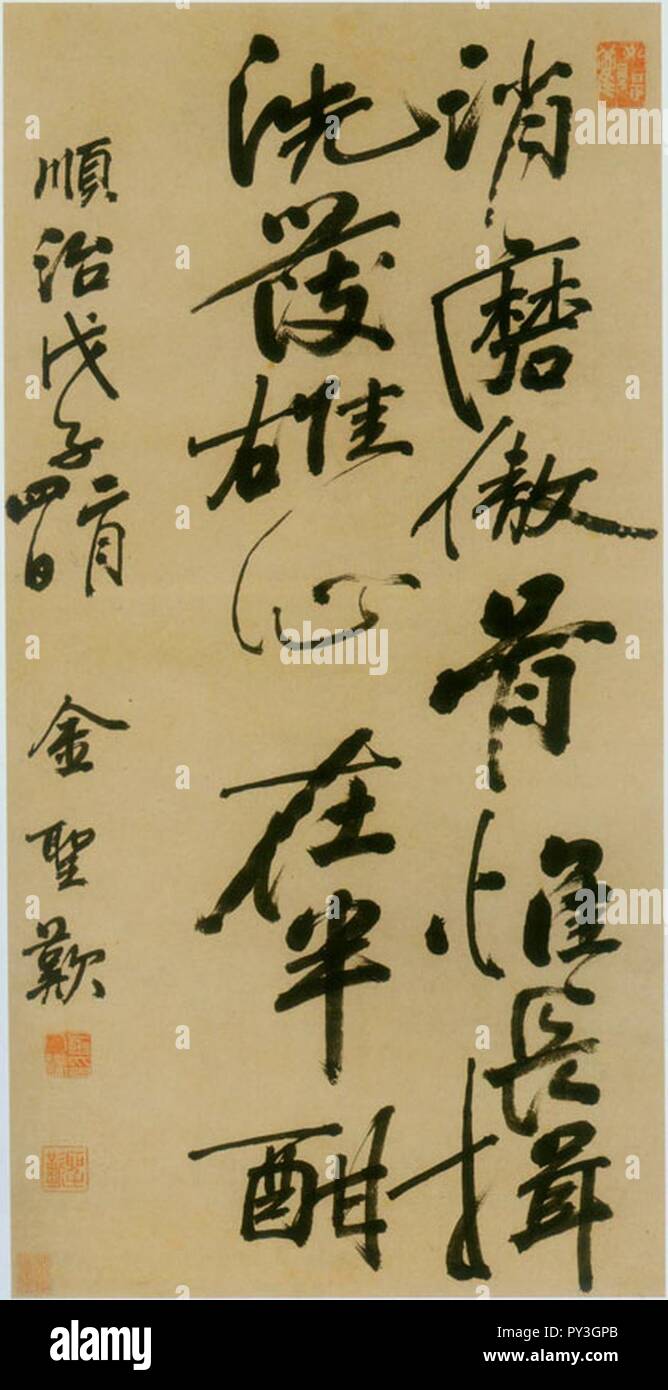 消磨傲骨惟長揖
洗發雄心在半酣
順治戊子二月四日 金聖歎
alamy
alamy
Image ID: PY3GPB
www.alamy.com